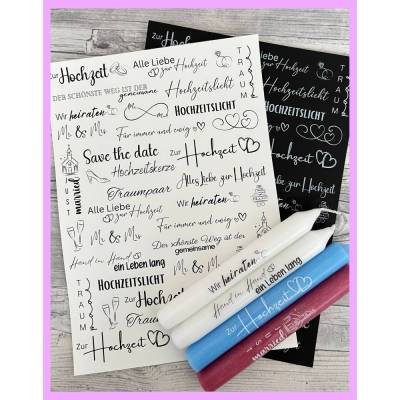 Zur Hochzeit
Alle Liebe
zur Hochzeit
DER SCHÖNSTE WEG IST DER
gemeinsame
Hochzeitslicht
Wir heiraten
HOCHZEITSLICHT
Mr & Mrs
Für immer und ewig
Save the date
Zur Hochzeit
Hochzeitskerze
Alles Liebe zur Hochzeit
JUST married
Traumpaar
Alle Liebe
zur Hochzeit
Wir heiraten
Für immer und ewig
Mr & Mrs
Der schönste Weg ist der
gemeinsame
Hand in Hand
ein Leben lang
Mr & Mrs
HOCHZEITSLICHT
TRAUM
Zur Hochzeit
Traumpaar
Zur Hochzeit
TRAUM
Zur
Hochzeitslicht
HOCHZEITSLICHT
Hochzeit
Alles Liebe zur Hochzeit
Wir heiraten
Wir heiraten
Hand in Hand
ein Leben lang
Zur Hochzeit
JUST married